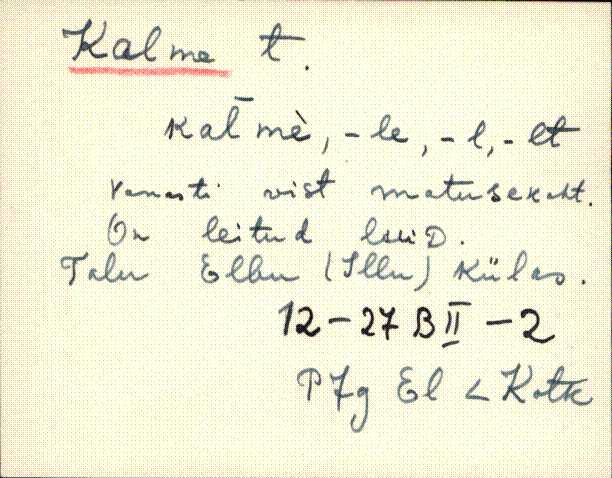 Kalme t.
kal̄mè, -le, -l, -et
Vanasti vist matusekoht.
On leitud luiD.
Talu Elbu (Illu) külas.
12-27 B II - 2
Pfg El < Kotk